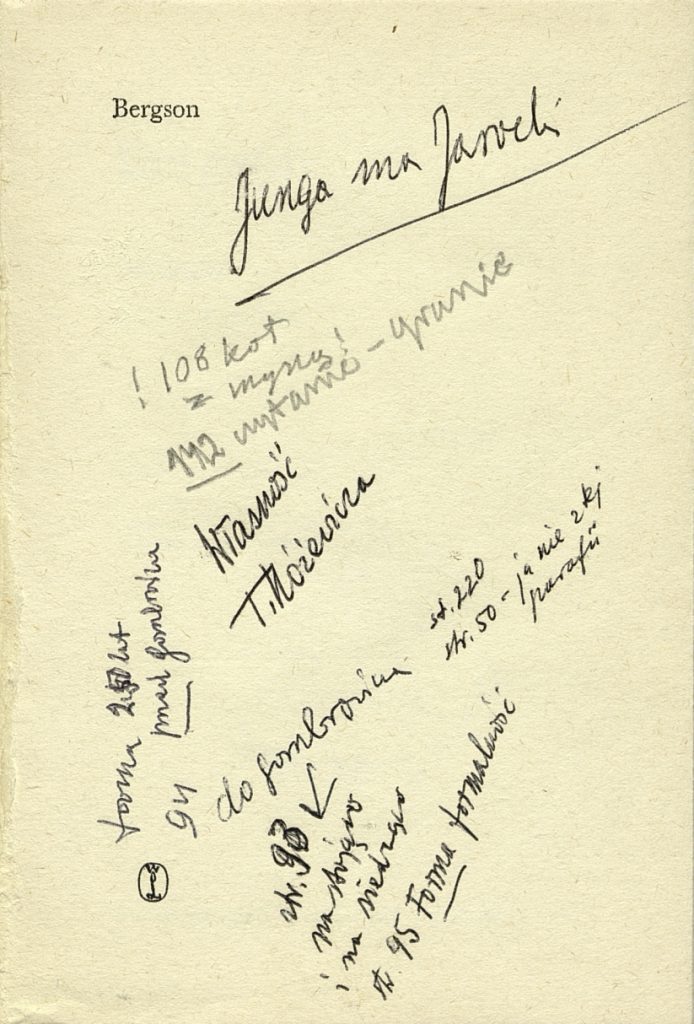 Bergson
Junga ma Jarocki
! 108 kot
z myszą!
112 pytanio - granie
Własność
T. Różewicza
str. 220
str. 50 - ja nie z tej
parafii
forma 250 lat
przed Gombrowicza
94
do Gombrowicza
str. 93
i na stojąco
i na siedząco
st. 95 Forma formalność